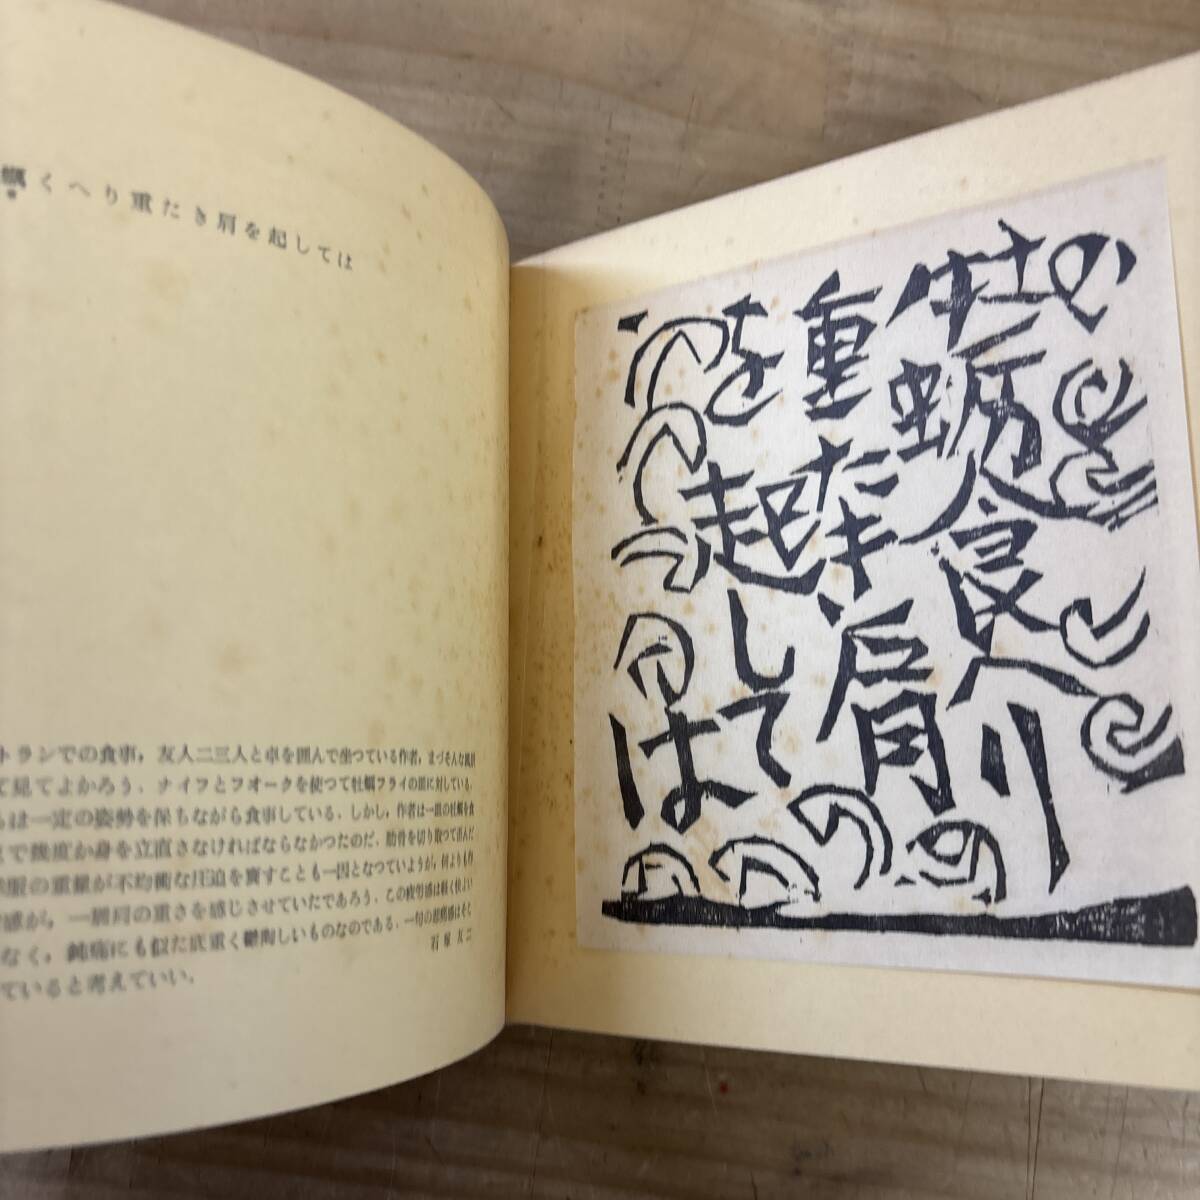 蠣くへり重たき肩を起しては
トランでの食事，友人二三人と卓を囲んで坐つている作者，まづそんな風景
て見てよかろう．ナイフとフオークを使つて牡蠣フライの皿に対している．
らは一定の姿勢を保ちながら食事している．しかし，作者は一皿の牡蠣を食
まで幾度か身を立直さなければならなかつたのだ．肋骨を切り取つて歪んだ
服の重量が不均衡な圧迫を齎すことも一因となつていようが，何よりも作
感が，一層肩の重さを感じさせていたであろう．この疲労感は軽く快よい
なく，鈍痛にも似た底重く鬱陶しいものなのである．一句の
ていると考えていい．
石塚友二
牡蛎食へり
重たき肩
を起しては